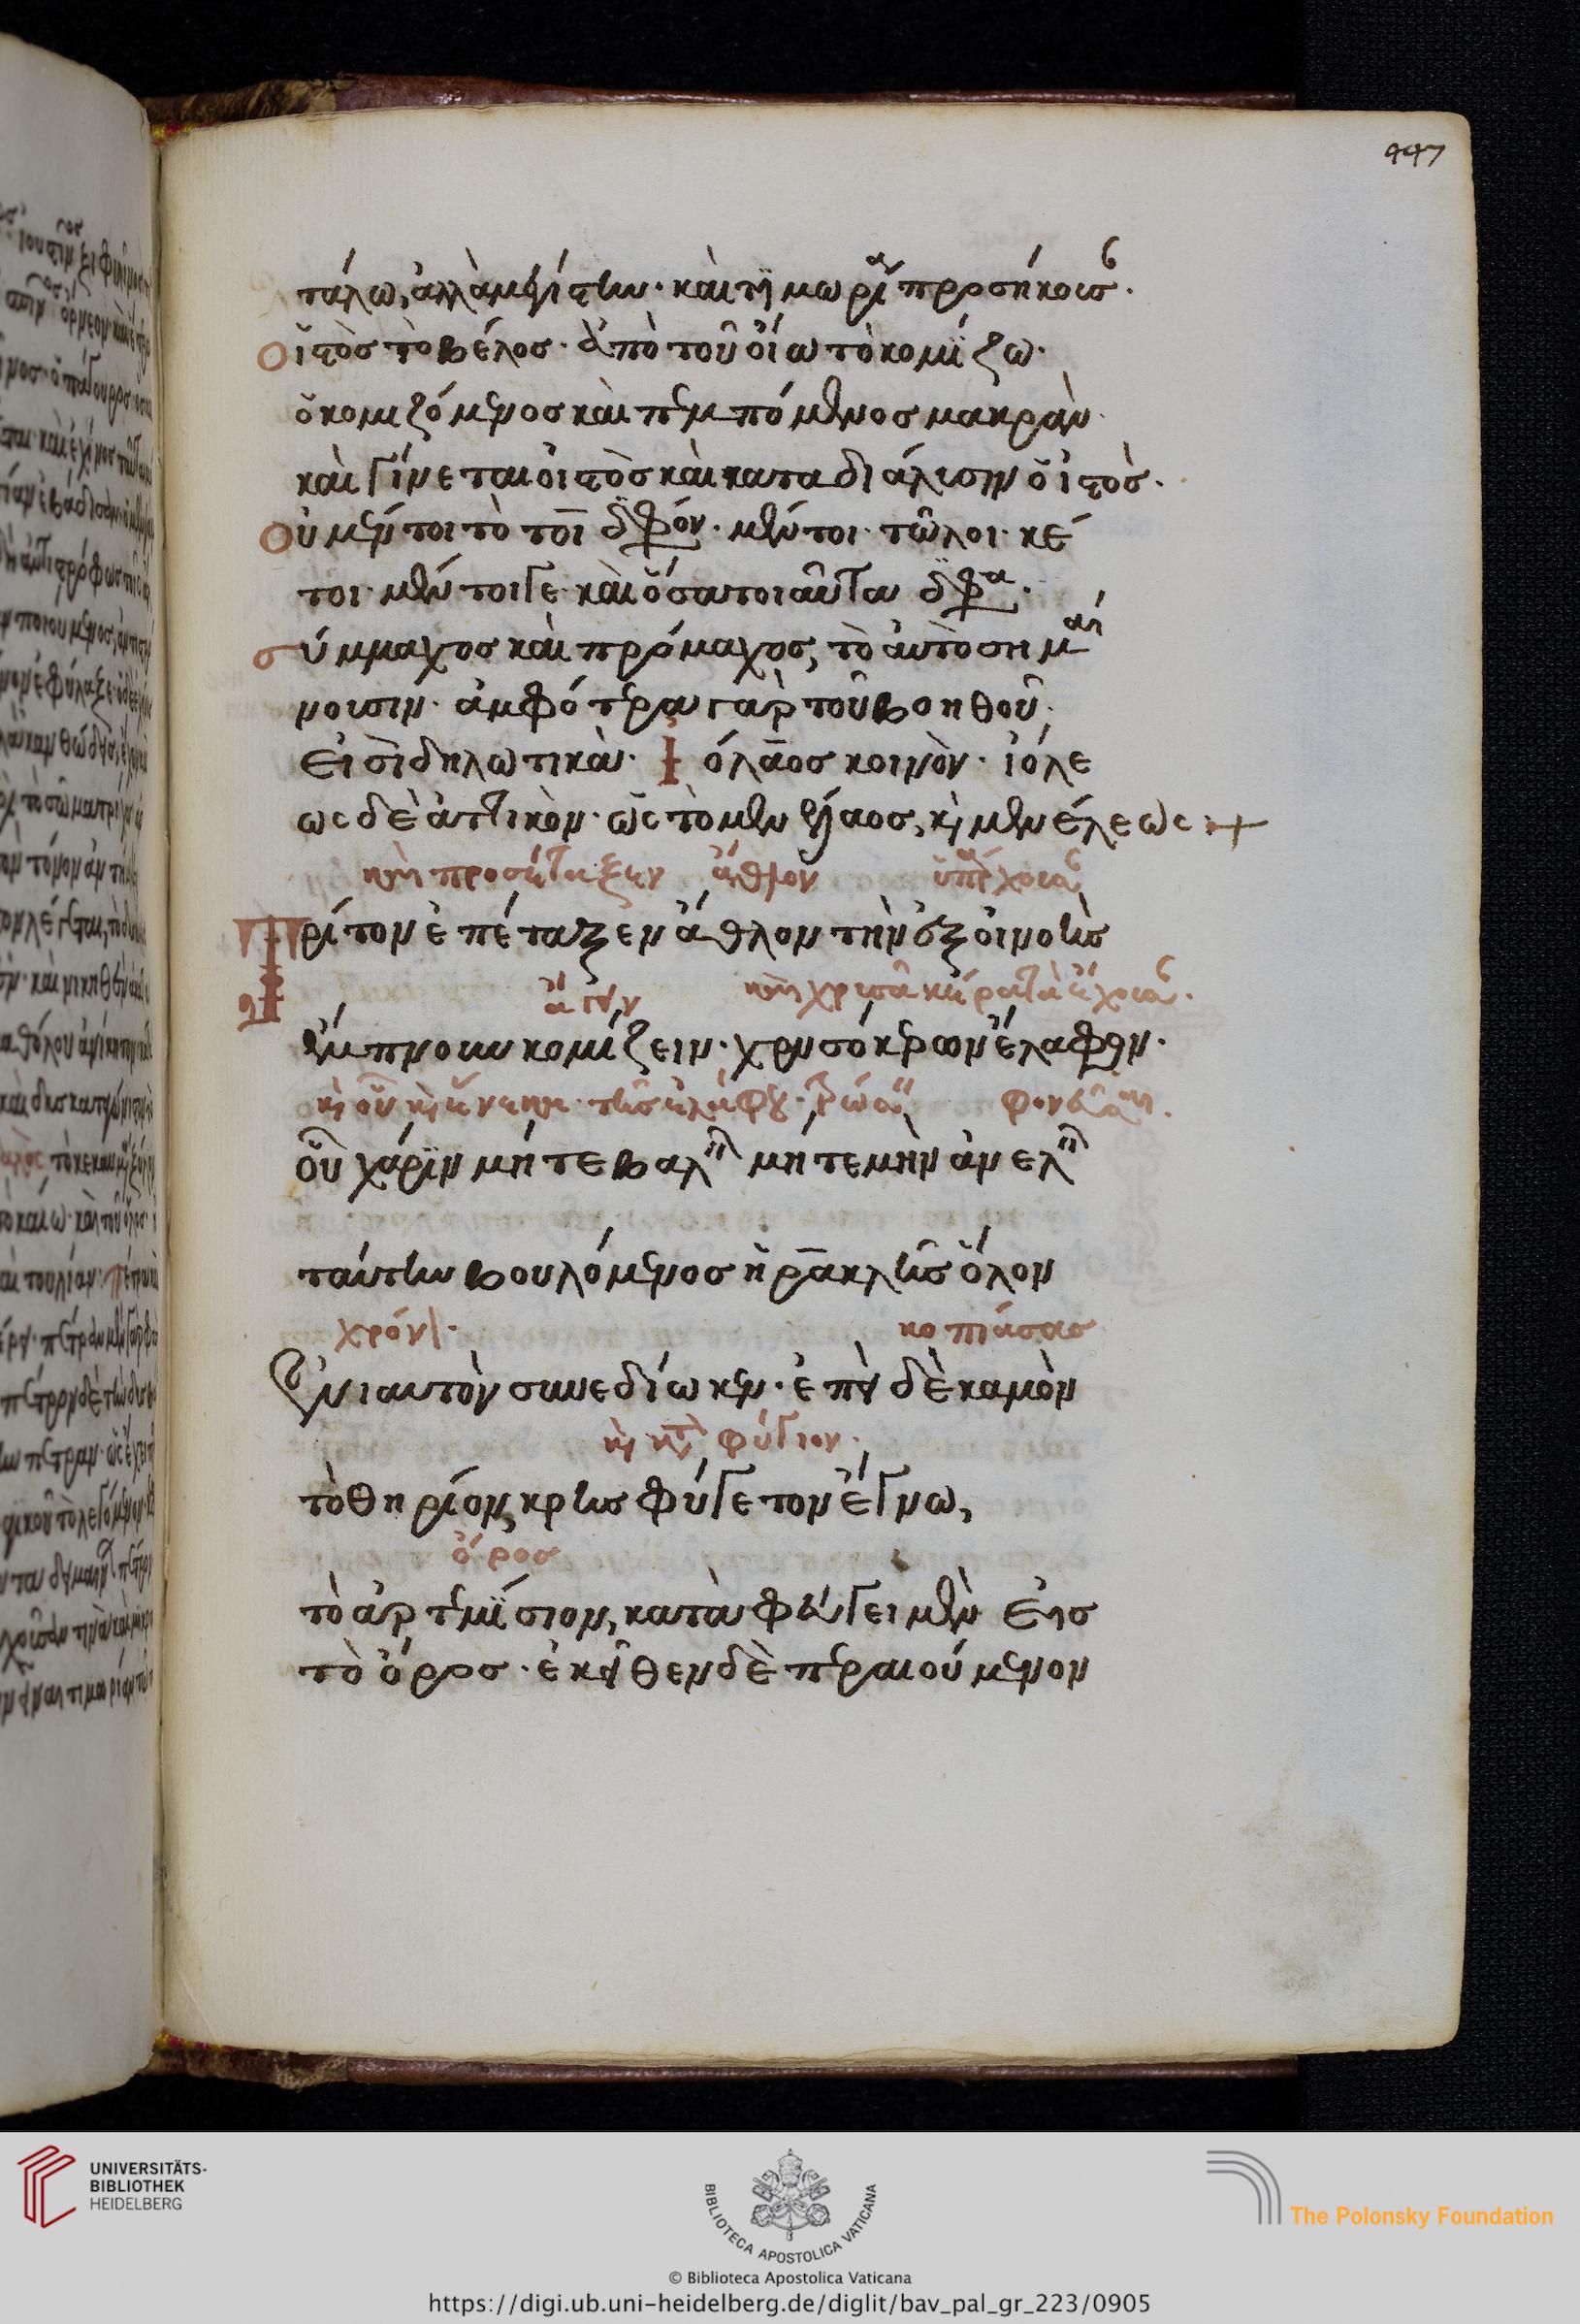 447
ταίλω, ἀλλὰ μγίστην· καὶ τῇ μωρίᾳ προσήκουσ
οἰστὸσ τὸ βέλοσ· ἀπὸ τοῦ οἴω τὸ κομίζω·
ὁ κομιζόμενοσ καὶ πεμπόμενοσ μακρὰν·
καὶ γίνεται οἰστὸσ καὶ κατα διάλισιν ὀϊστὸσ·
Οὐ μέντοι τὸ τοι· μέντοι· τῶλοι· κέ
τοι· μέντοιγε· καὶ ὅσα τοιαῦτα
σύμμαχοσ καὶ πρόμαχοσ, τὸ αὐτὸ σημαί
νουσιν· ἀμφότερα γαρ τοῦ βοηθοῦ·
εἰσὶ δηλωτικὰ· ὁ λαοσ κοινὸν· ἰόλε
ως δὲ ἀττικὸν· ὡς τὸ μὲν ἵλαος, κὴ μὲν ἕλεως :+
προσέταξεν ἆθλον ὑπάρχουσαν
Τρίτον ἐπέταξεν ἆθλον τὴν ἐξ οἰνόησ
ἄγειν χρυσᾶ κέρατα ἔχουσαν.
ἔμπνουν κομίζειν· χρυσόκερων ἔλαφον·
κὴ οὗ ἕνεκεν· τῆσ ἐλάφου·
οὗ χάριν μήτε βαλεῖν μήτε μὴν ἀνελεῖν
ταύτην βουλόμενοσ ἡρακλῆσ ὅλον
χρόνον· κοπιάσασ
ἐνιαυτὸν συνεδίωκεν· ἐπεὶ δὲ καμὸν
φύγιον·
τὸ θηρίον, κρησφύγετον ἔγνω,
ὄροσ
τὸ ἀρτεμίσιον, καταφεύγει μὲν εἰσ
τὸ ὄροσ· ἐκεῖθεν δὲ περαιούμενον
UNIVERSITÄTS-
BIBLIOTHEK
HEIDELBERG
BIBLIOTECA APOSTOLICA VATICANA
The Polonsky Foundation
© Biblioteca Apostolica Vaticana
https://digi.ub.uni-heidelberg.de/diglit/bav_pal_gr_223/0905